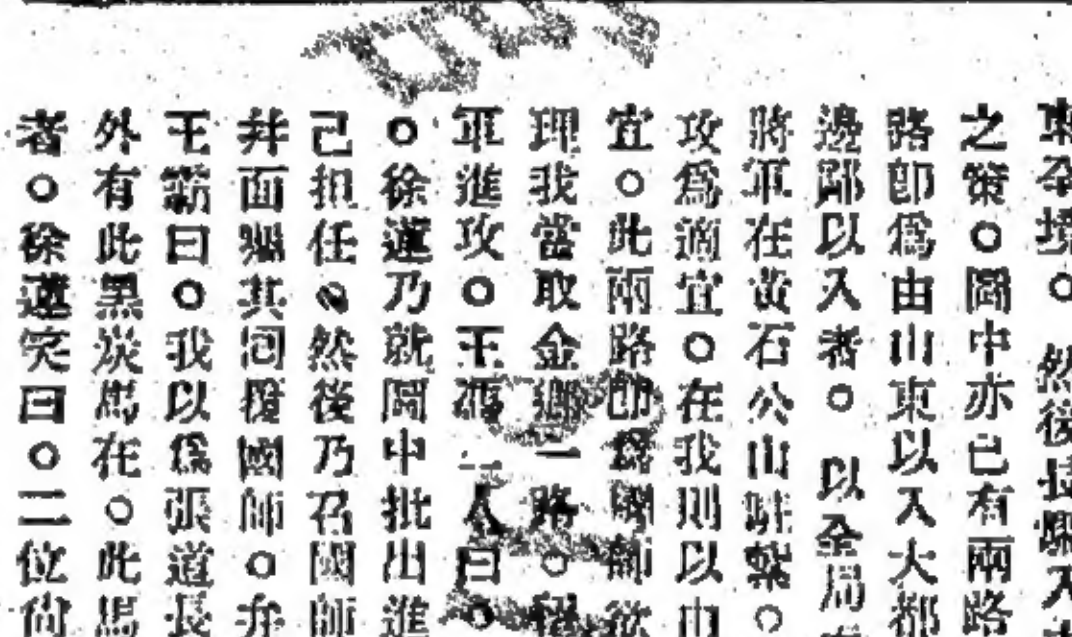 東孕境。然後長驅入
之策。關中亦已有兩路
路卽爲由山東以入大都
邊鄙以入者。以全局
將軍在黃石公山駐紮。
攻爲適宜。在我則以由
宜。此兩路卽爲國師欲
理我當取金鄉一路。
軍進攻。王 二人曰。
。徐達乃就關中批出進
己担任。然後乃召國師
井面 其回覆國師。弁
王 曰。我以爲張道長
外有此黑炭馬在。此馬
者。徐達笑曰。二位尙